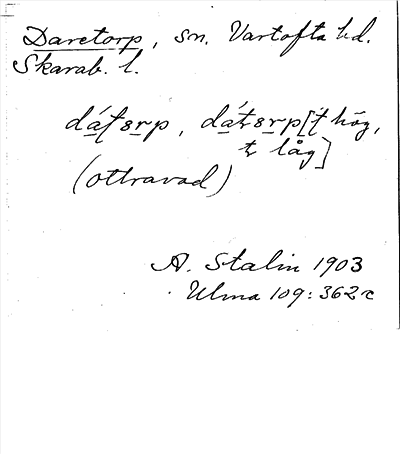 Daretorp, sn. Vartofta hd.
Skarab. l.
dátsrp, dátsrp [t hög,
t låg]
(ottravad)
A. Stalin 1903
Ulma 109:362